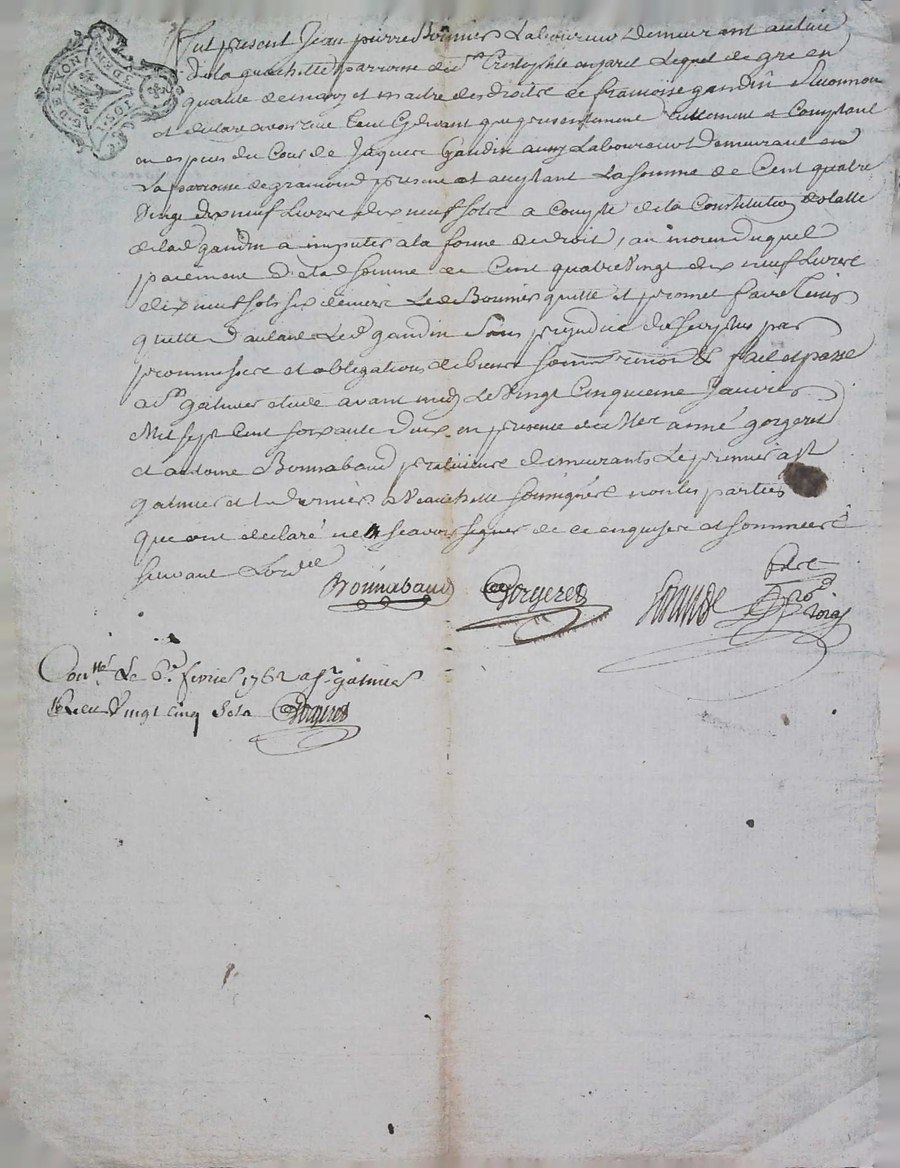 G. DE LYON
Fut present Jean pierre Bonnier Laboureur Demeurant au lieu
de la parroisse de Lequel de gre en
qualité de mary et maitre des droits de françoise gandin
et declare avoir recu Cy devant que presentement reellement et Comptant
en especes du Cour de Jacques gandin aussy Laboureur Demeurant en
La parroisse de gramond present et aceptant La somme de Cent quatre
Vingt dix neuf Livres dix neuf sols a Compte de la Constitution
de lad gandin a imputer a la forme de droit, au moyen duquel
paiement de lad somme de Cent quatre Vingt dix neuf Livres
dix neuf sols six deniers Led Bonnier quitte et promet faire tenir
quitte d'autant Led gandin Sans prejudice du surplus par
promesses et obligations de biens fait et passé
a St galmier etude avant midy Le Vingt Cinquieme Janvier
Mil sept Cent soixante deux en presence de Mer annė gorgeret
et antoine Bonnabaud praticiens demeurants Le premier a St
galmier et Le dernier a Veauchette soussignés non les parties
que ont declaré ne scavoir signer de ce enquises et sommées
suivant Lordce
Bonnabaud Gorgeret
Conlé Le 6e fevrier 1762 a St galmier
Recu Vingt cinq sols Gorgeret